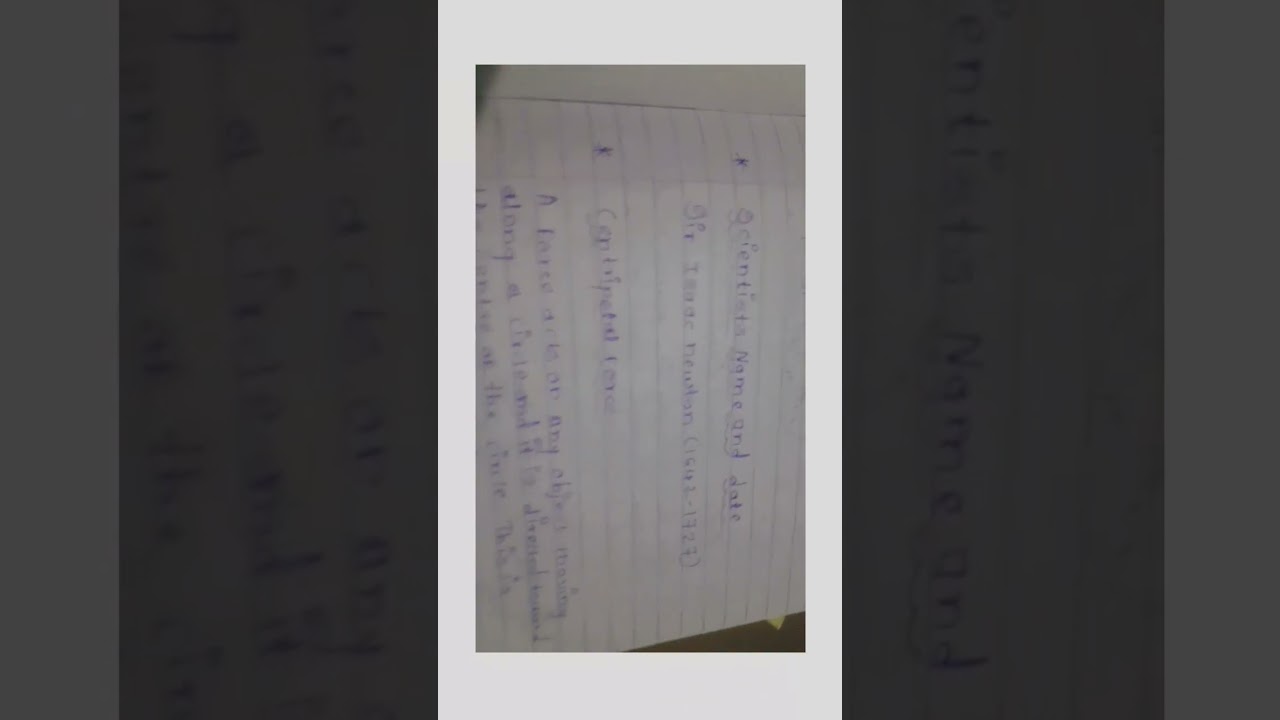 * Scientists Name and date
Sir Isaac newton (1642-1727)
* Centripetal force
A force acts on any object moving
along a circle and it is directed toward
the centre of the circle. This is